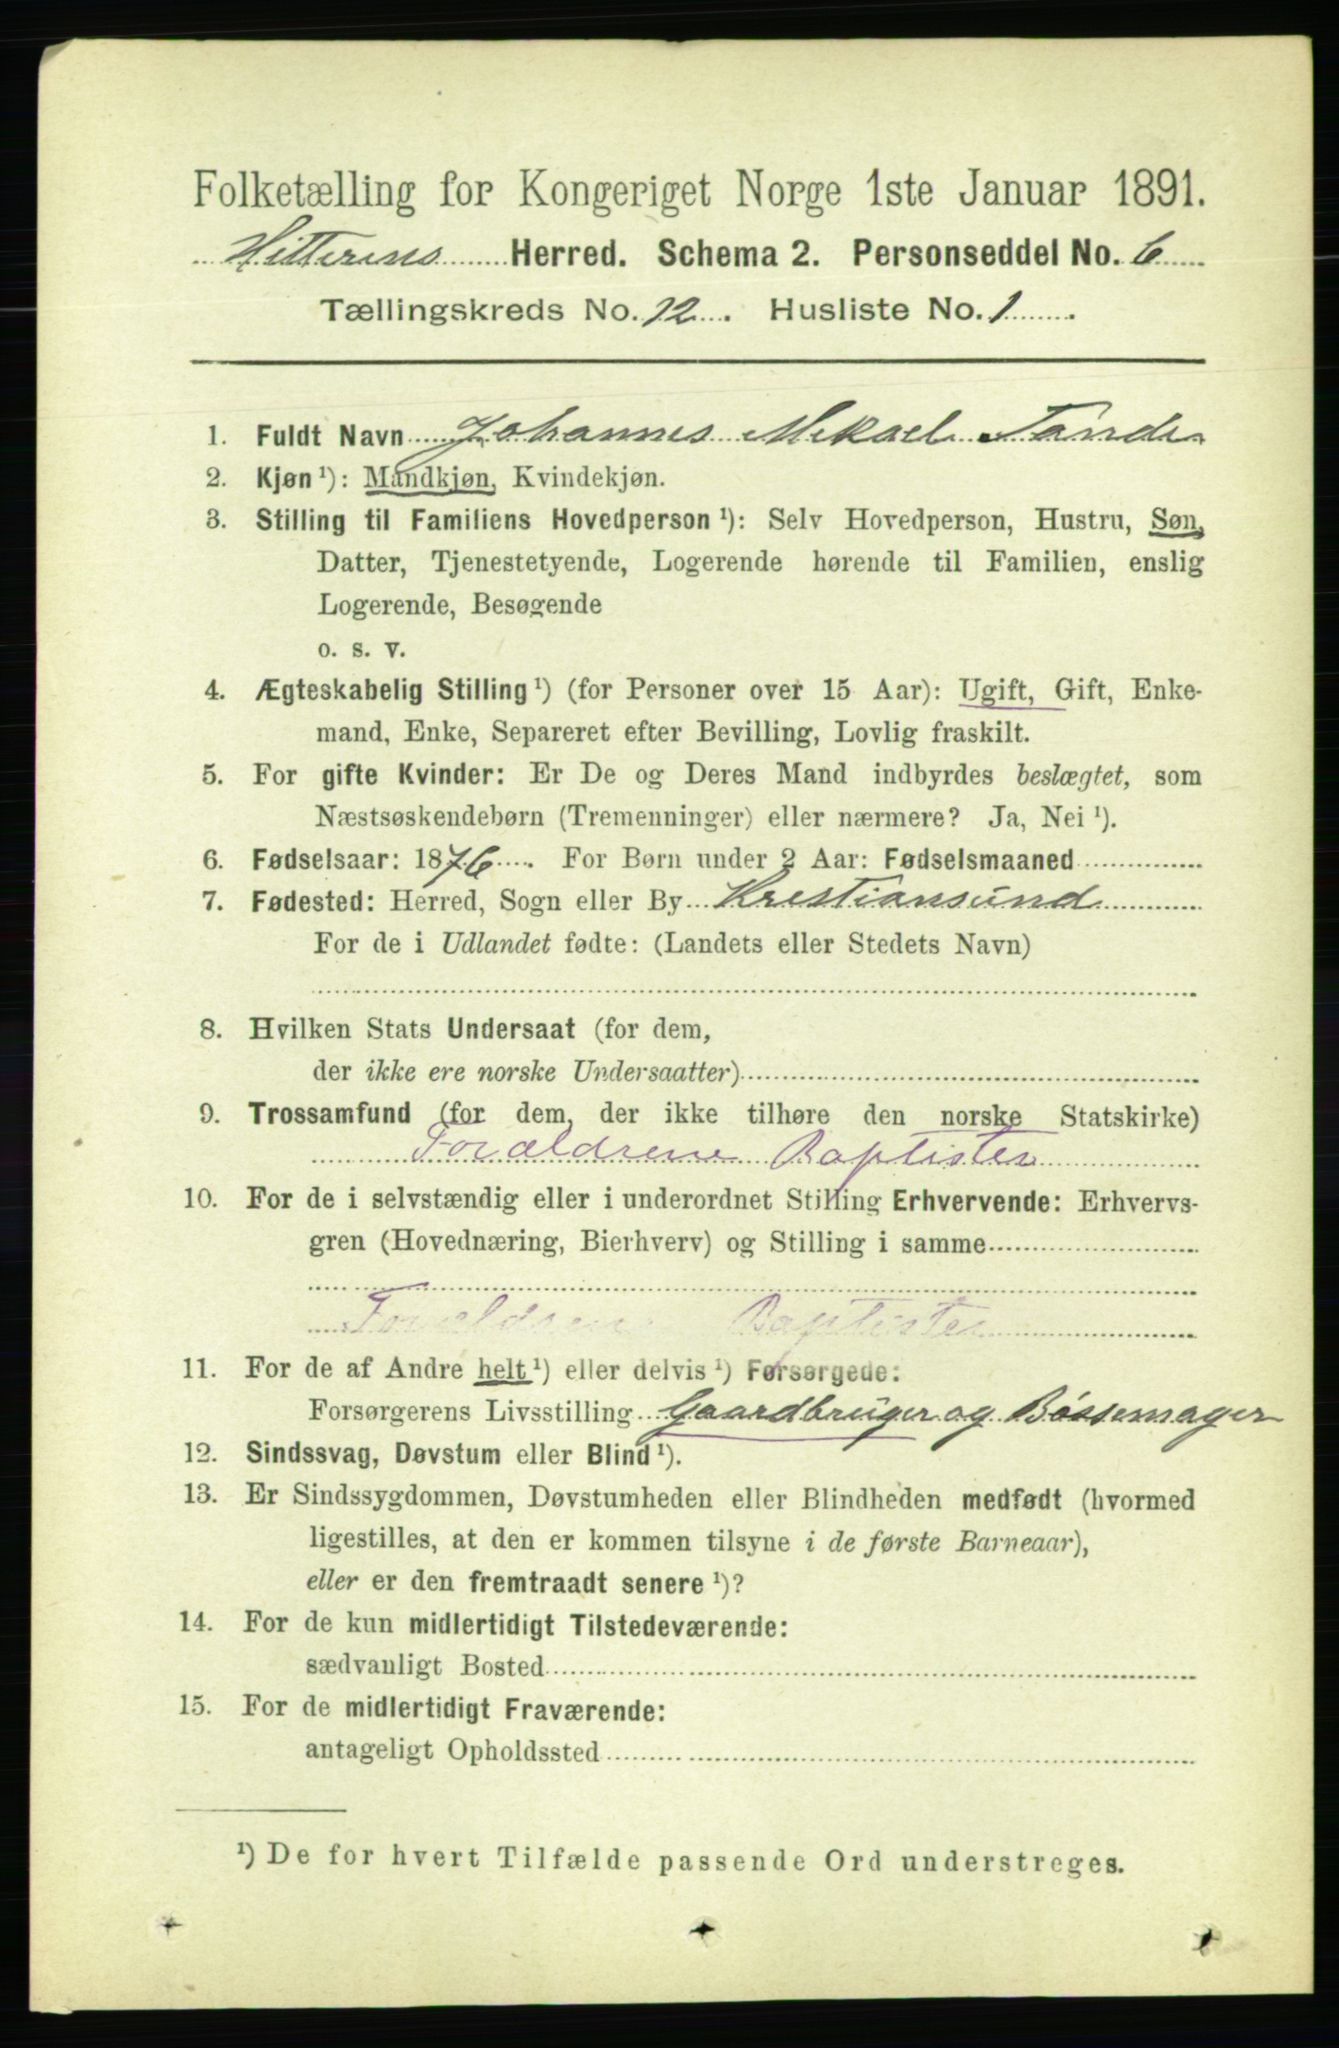 Folketælling for Kongeriget Norge 1ste Januar 1891.
Hitterens Herred. Schema 2. Personseddel No. 6
Tællingskreds No. 12. Husliste No. 1.
1. Fuldt Navn Johannes Mikael Tande
2. Kjøn ¹): Mandkjøn, Kvindekjøn.
3. Stilling til Familiens Hovedperson ¹): Selv Hovedperson, Hustru, Søn,
Datter, Tjenestetyende, Logerende hørende til Familien, enslig
Logerende, Besøgende
o. s. v.
4. Ægteskabelig Stilling ¹) (for Personer over 15 Aar): Ugift, Gift, Enke-
mand, Enke, Separeret efter Bevilling, Lovlig fraskilt.
5. For gifte Kvinder: Er De og Deres Mand indbyrdes beslægtet, som
Næstsøskendebørn (Tremenninger) eller nærmere? Ja, Nei ¹).
6. Fødselsaar: 1876. For Børn under 2 Aar: Fødselsmaaned
7. Fødested: Herred, Sogn eller By Krestiansund
For de i Udlandet fødte: (Landets eller Stedets Navn)
8. Hvilken Stats Undersaat (for dem,
der ikke ere norske Undersaatter)
9. Trossamfund (for dem, der ikke tilhøre den norske Statskirke)
Forældrene Baptister
10. For de i selvstændig eller i underordnet Stilling Erhvervende: Erhvervs-
gren (Hovednæring, Bierhverv) og Stilling i samme
Forældrene Baptister
11. For de af Andre helt ¹) eller delvis ¹) Forsørgede:
Forsørgerens Livsstilling Gaardbruger og Bøssemager
12. Sindssvag, Døvstum eller Blind ¹).
13. Er Sindssygdommen, Døvstumheden eller Blindheden medfødt (hvormed
ligestilles, at den er kommen tilsyne i de første Barneaar),
eller er den fremtraadt senere ¹)?
14. For de kun midlertidigt Tilstedeværende:
sædvanligt Bosted
15. For de midlertidigt Fraværende:
antageligt Opholdssted
¹) De for hvert Tilfælde passende Ord understreges.